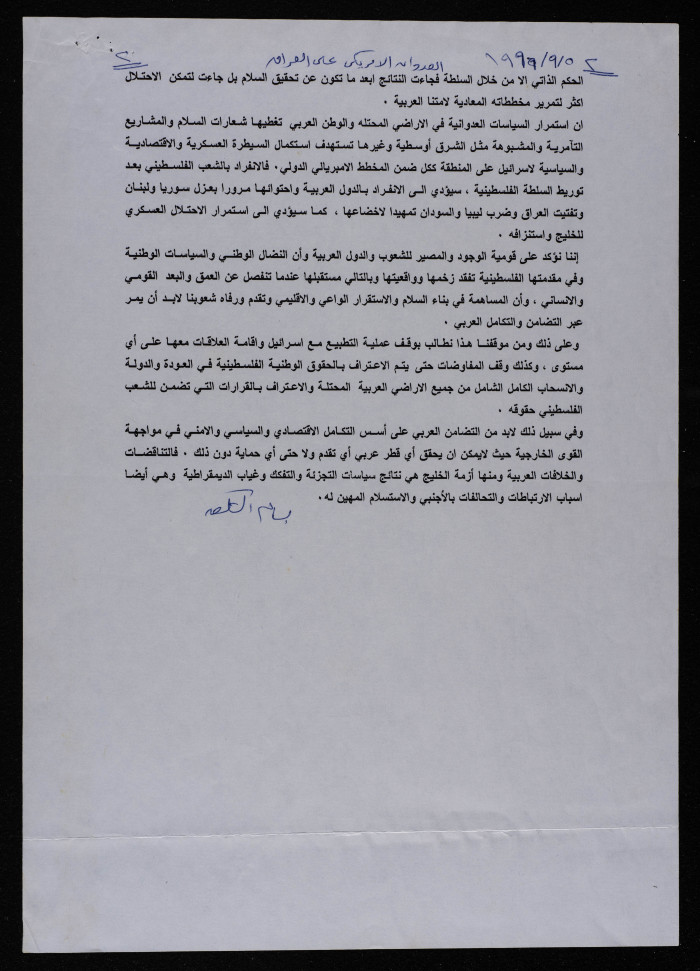 ٢ ١٩٩٦/٩/٥ العدوان الامريكي على العراق ٢
الحكم الذاتي إلا من خلال السلطة فجاءت النتائج ابعد ما تكون عن تحقيق السلام بل جاءت لتمكن الاحتلال
اكثر لتمرير مخططاته المعادية لامتنا العربية .
ان استمرار السياسات العدوانية في الاراضي المحتله والوطن العربي تغطيها شعارات السلام والمشاريع
التآمرية والمشبوهة مثل الشرق أوسطية وغيرها تستهدف استكمال السيطرة العسكرية والاقتصادية
والسياسية لاسرائيل على المنطقة ككل ضمن المخطط الامبريالي الدولي . فالانفراد بالشعب الفلسطيني بعد
توريط السلطة الفلسطينية ، سيؤدي الى الانفراد بالدول العربية واحتوائها مرورا بعزل سوريا ولبنان
وتفتيت العراق وضرب ليبيا والسودان تمهيدا لاخضاعها ، كما سيؤدي الى استمرار الاحتلال العسكري
للخليج واستنزافه .
إننا نؤكد على قومية الوجود والمصير للشعوب والدول العربية وأن النضال الوطني والسياسات الوطنية
وفي مقدمتها الفلسطينية تفقد زخمها وواقعيتها وبالتالي مستقبلها عندما تنفصل عن العمق والبعد القومي
والانساني ، وأن المساهمة في بناء السلام والاستقرار الواعي والاقليمي وتقدم ورفاه شعوبنا لابد أن يمر
عبر التضامن والتكامل العربي .
وعلى ذلك ومن موقفنا هذا نطالب بوقف عملية التطبيع مع اسرائيل واقامة العلاقات معها على أي
مستوى ، وكذلك وقف المفاوضات حتى يتم الاعتراف بالحقوق الوطنية الفلسطينية في العودة والدولة
والانسحاب الكامل الشامل من جميع الاراضي العربية المحتلة والاعتراف بالقرارات التي تضمن للشعب
الفلسطيني حقوقه .
وفي سبيل ذلك لابد من التضامن العربي على أسس التكامل الاقتصادي والسياسي والامني في مواجهة
القوى الخارجية حيث لايمكن ان يحقق أي قطر عربي أي تقدم ولا حتى أي حماية دون ذلك . فالتناقضات
والخلافات العربية ومنها أزمة الخليج هي نتائج سياسات التجزئة والتفكك وغياب الديمقراطية وهي أيضا
اسباب الارتباطات والتحالفات بالأجنبي والاستسلام المهين له .
بسام الشكعه